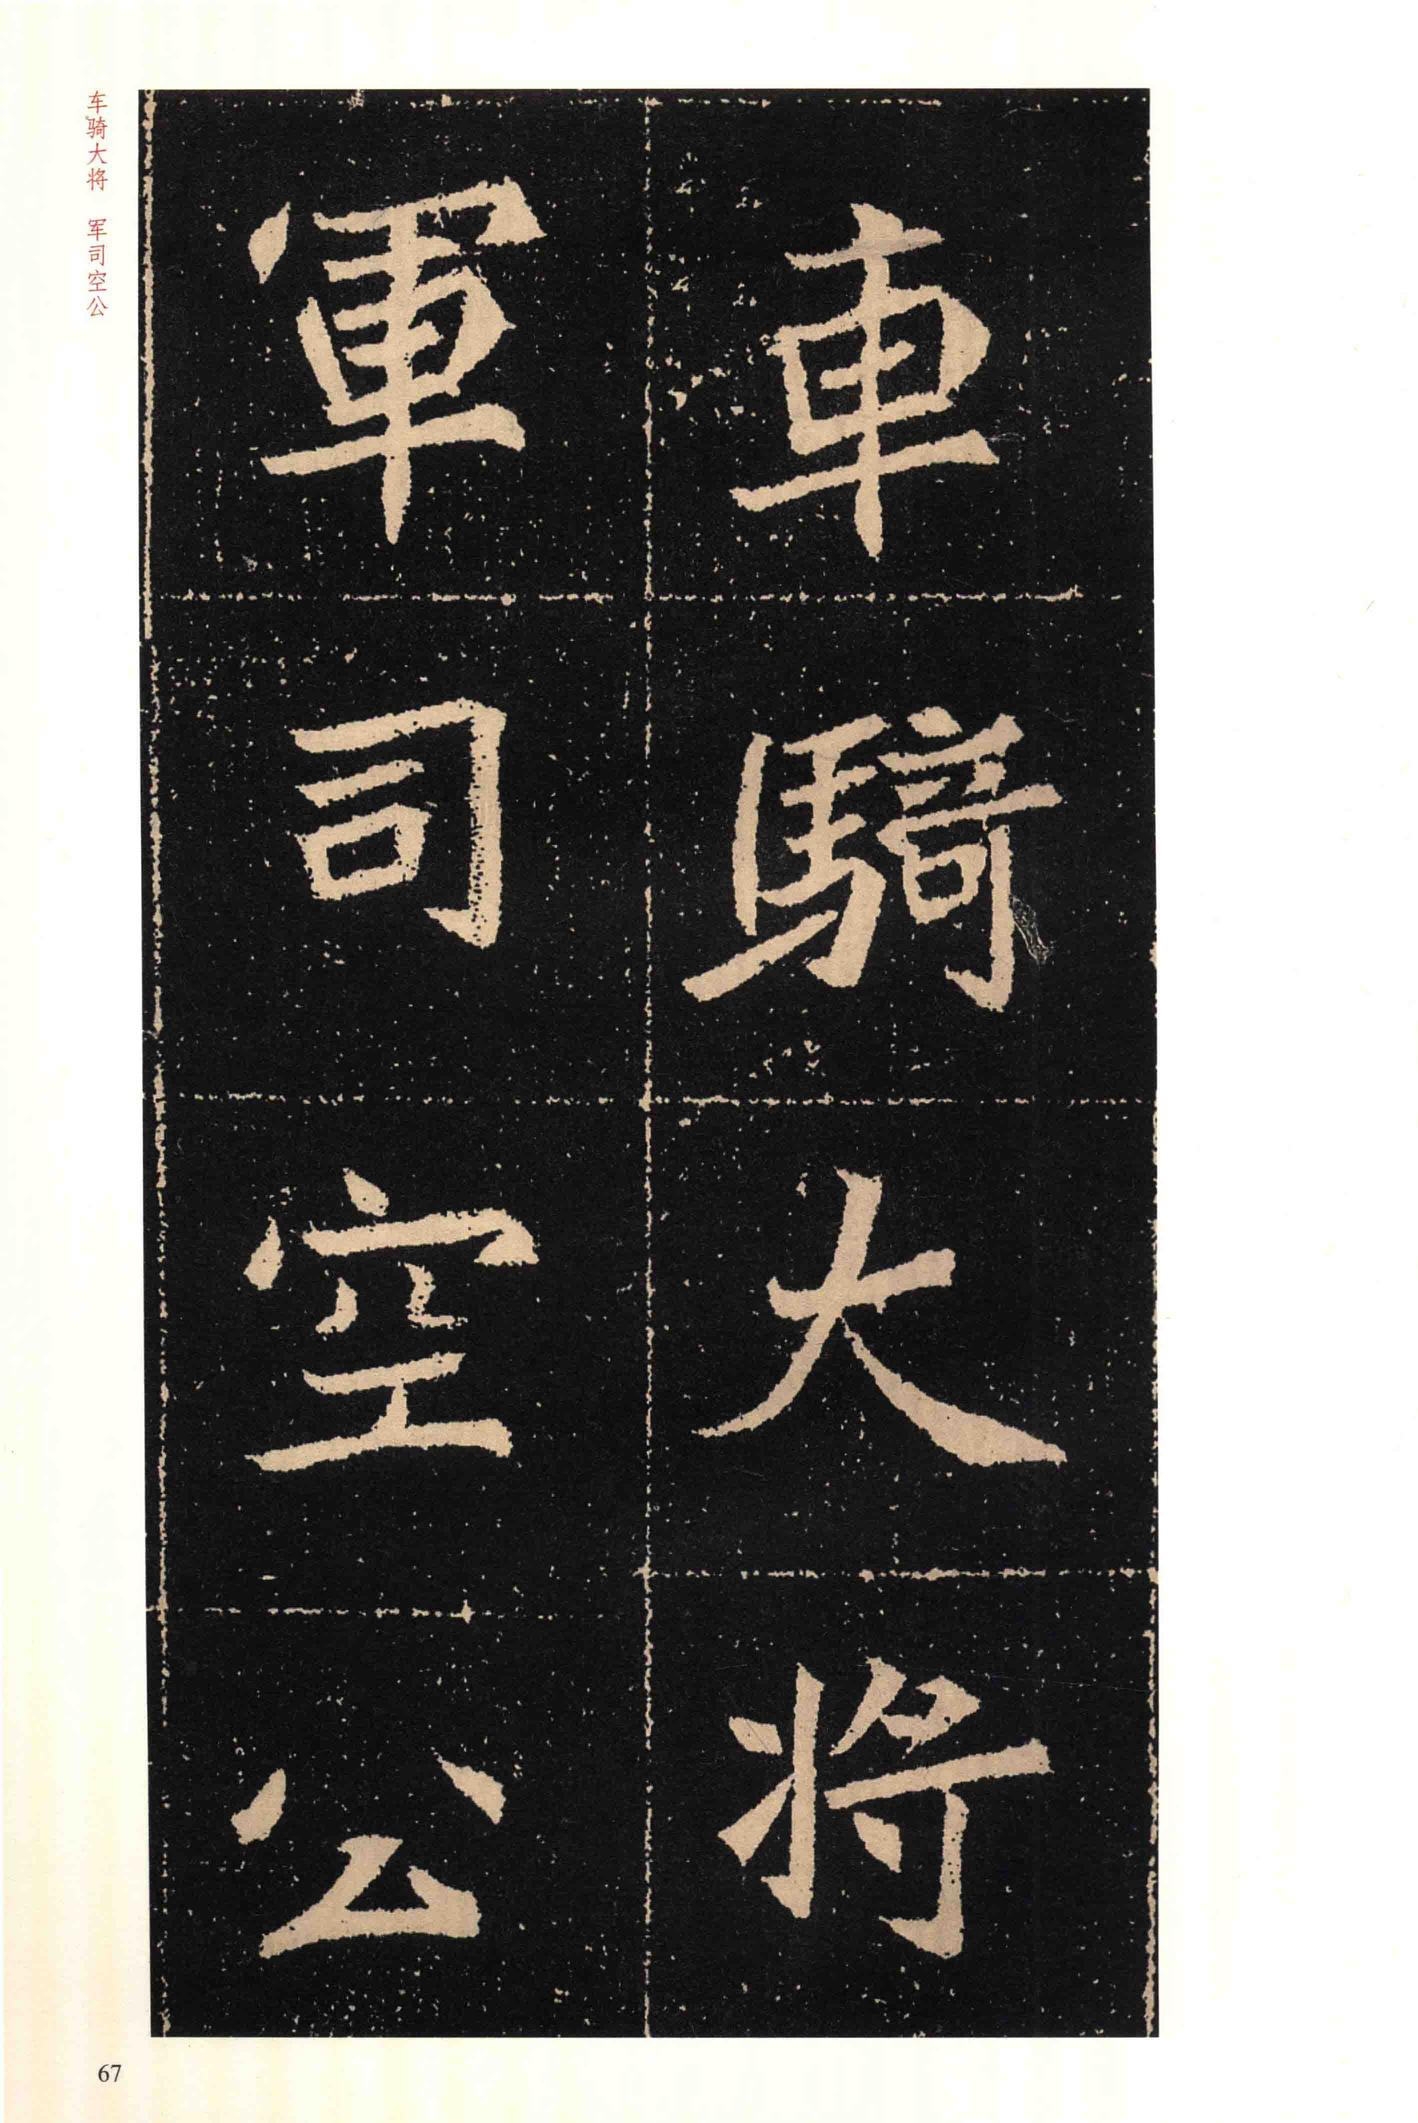 車騎大将
軍司空公
车骑大将　军司空公
67